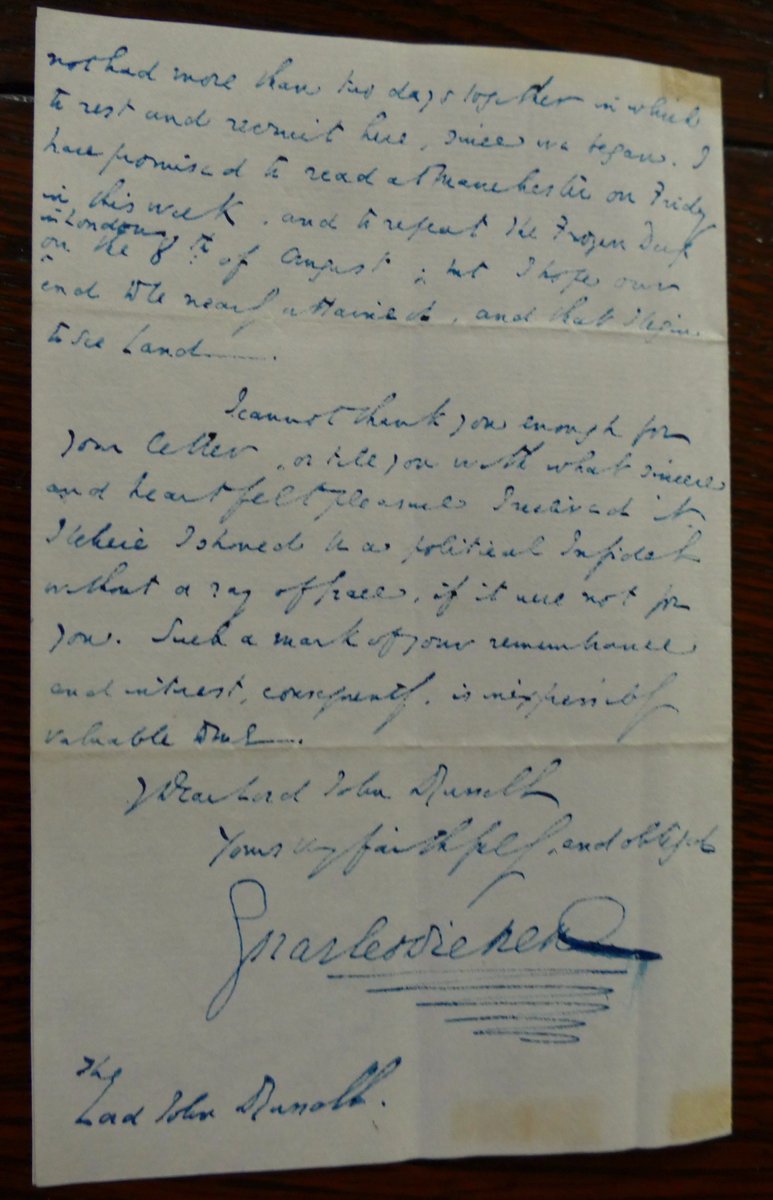 not had more than two days together in which
to rest and recruit here, since we began. I
have promised to read at Manchester on Friday
in this week, and to repeat the Frozen Deep
in London
on the 8th of August; but I hope our
end to be nearly attained, and that I begin
to see Land.
I cannot thank you enough for
your letter, or tell you with what sincere
and heartfelt pleasure I received it.
I believe I should be a political Infidel
without a ray of grace, if it were not for
you. Such a mark of your remembrance
and interest, consequently, is inexpressibly
valuable to me.
My Dear Lord John Russell
Yours very faithfully and obliged
Charles Dickens
The
Lord John Russell.